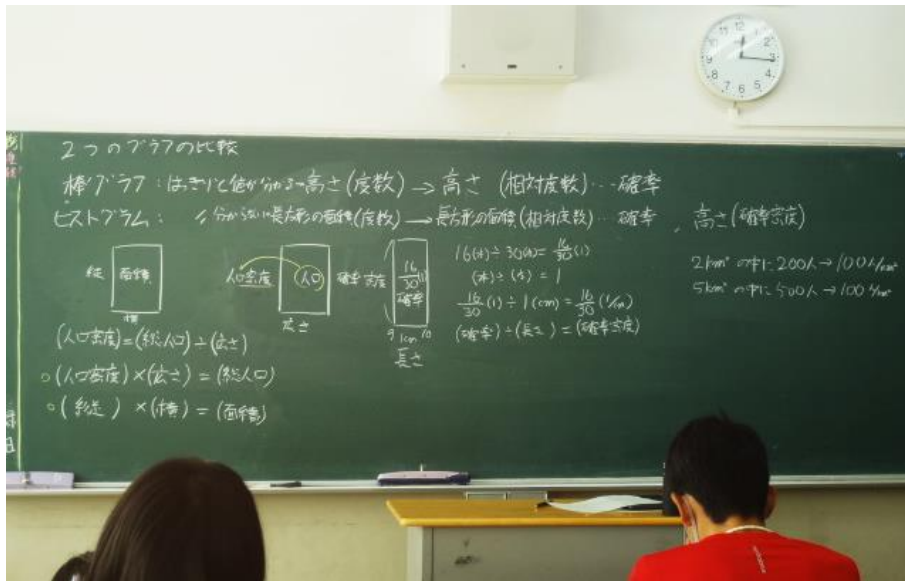 2つのグラフの比較
棒グラフ：はっきりと値が分かる→高さ(度数)→高さ(相対度数)…確率
ヒストグラム：〃分からない→長方形の面積(度数)→長方形の面積(相対度数)…確率，高さ(確率密度)
縦 面積
横
人口密度 人口
広さ
確率密度 16/30(1) 確率
9 1cm 10
長さ
16(本)÷30(本)=16/30(1)
(本)÷(本)=1
16/30(1)÷1(cm)=16/30(1/cm)
(確率)÷(長さ)=(確率密度)
2km²の中に200人→100人/km²
5km²の中に500人→100人/km²
(人口密度)=(総人口)÷(広さ)
○(人口密度)×(広さ)=(総人口)
○(縦)×(横)=(面積)
12
1
2
3
4
5
6
7
8
9
10
11